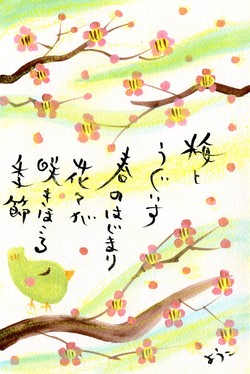 梅と
うぐいす
春のはじまり
花々が
咲きほこる
季節
ようこ